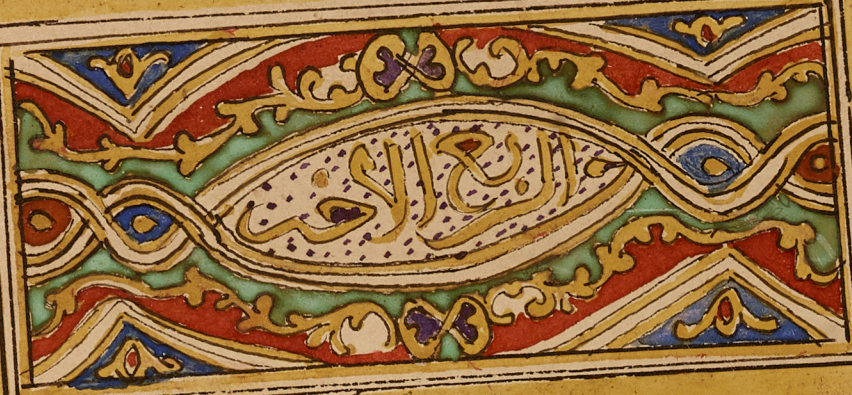 الربع الاخير